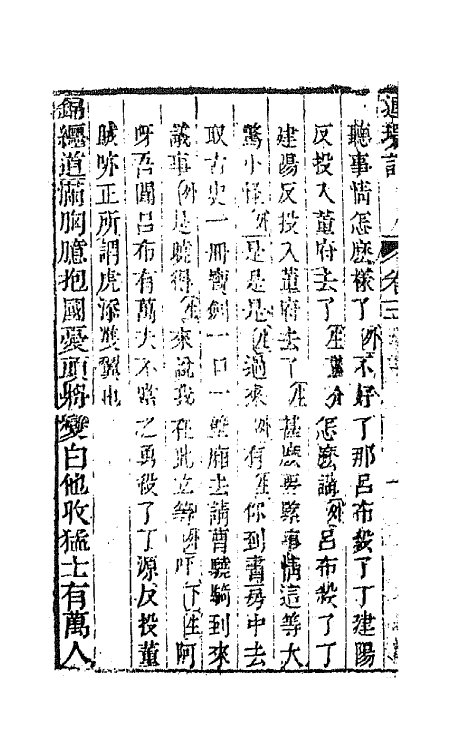 連環記 卷上
聽事情怎麽樣了外不好了那呂布殺了丁建陽
反投入董府去了生怎麽講外呂布殺了丁
建陽反投入董府去了生甚麽要緊事情這等大
驚小怪外是是是生過來外有生你到書房中去
取古史一冊寶劍一口一壁廂去請曹驍騎到來
議事外是曉得生來說我在此立等外吓下生阿
呀吾聞呂布有萬夫不當之勇殺了丁源反投董
賊咏正所謂虎添雙翼也
錦纏道滿胸臆抱國憂頭將變白他收猛士有萬人